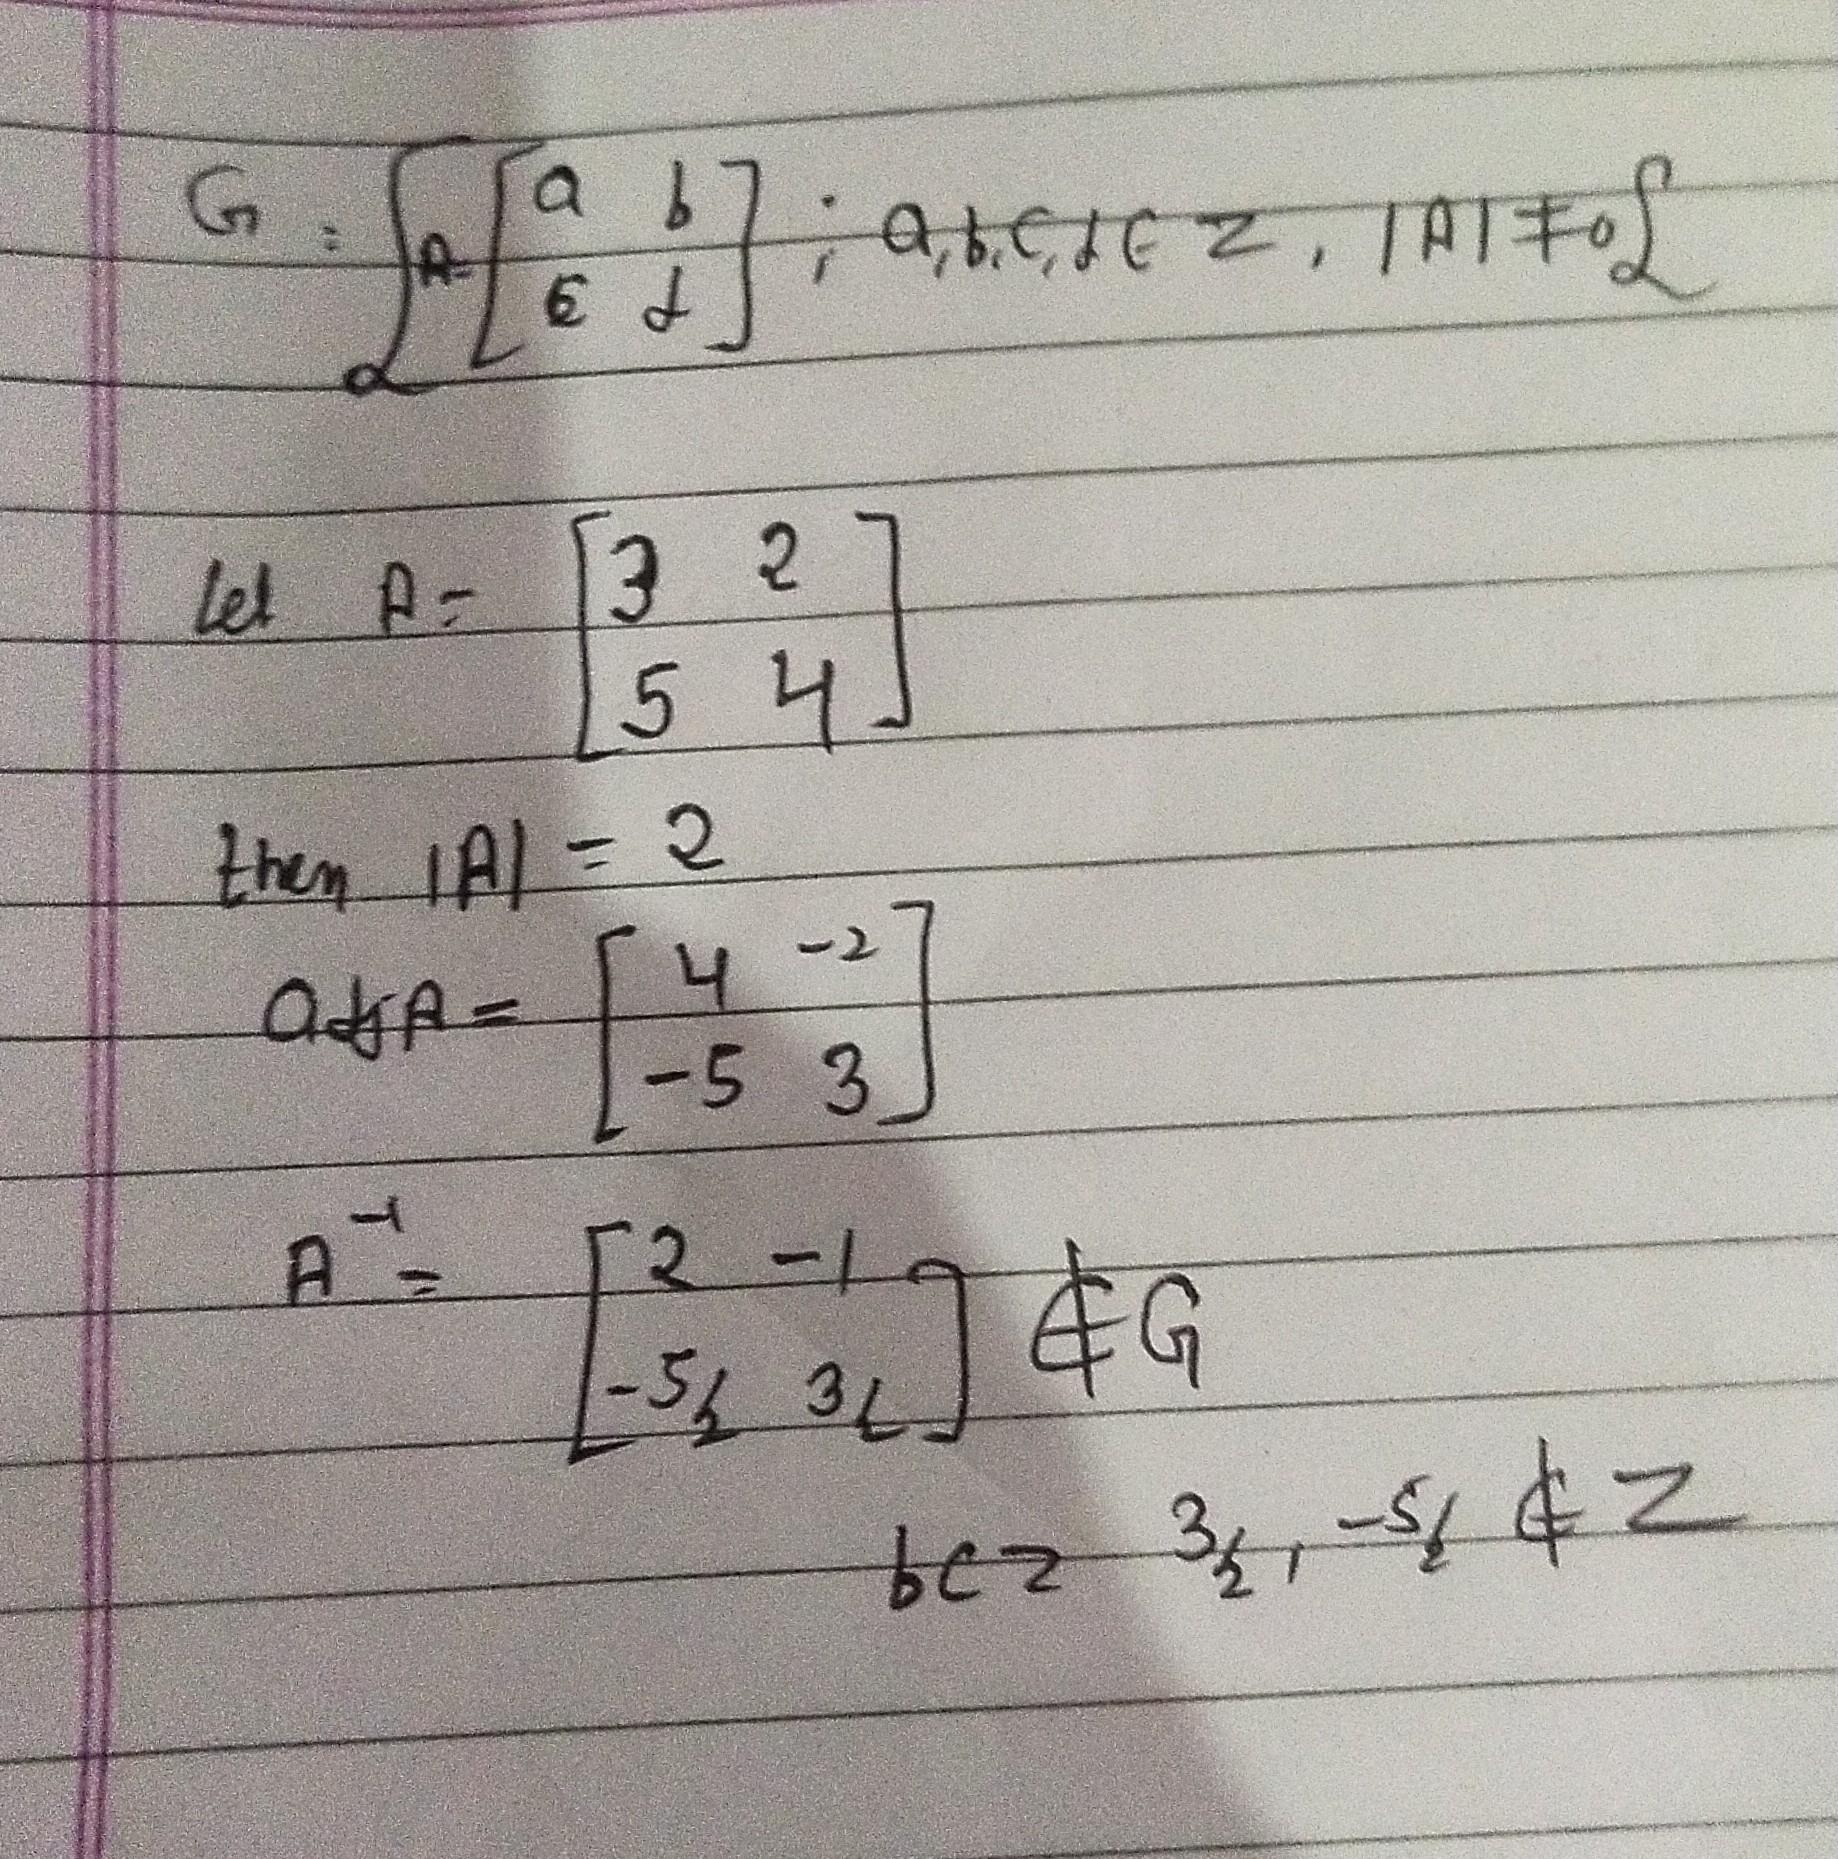 G = { A = [ a b ; a, b, c, d ∈ Z, |A| ≠ 0 }
c d ]
Let A = [ 3 2
5 4 ]
then |A| = 2
adj A = [ 4 -2
-5 3 ]
A⁻¹ = [ 2 -1 ] ∉ G
-5/2 3/2
bcz 3/2, -5/2 ∉ Z